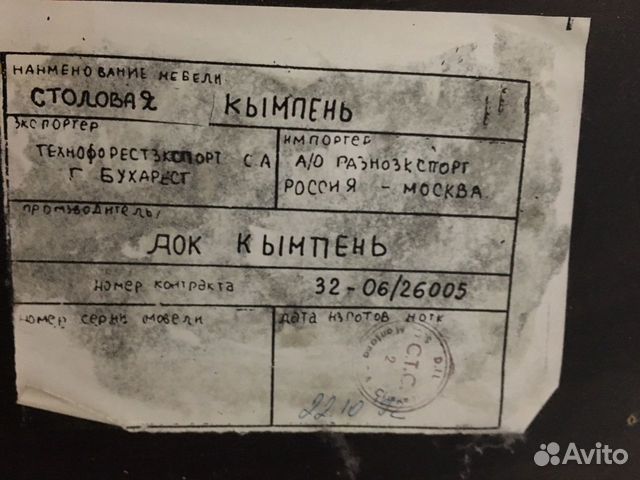 НАИМЕНОВАНИЕ МЕБЕЛИ
СТОЛОВАЯ КЫМПЕНЬ II
ЭКСПОРТЕР
ТЕХНОФОРЕСТЭКСПОРТ С А
Г БУХАРЕСТ
ИМПОРТЕР
А/О РАЗНОЭКСПОРТ
РОССИЯ - МОСКВА
ПРОИЗВОДИТЕЛЬ/
ДОК КЫМПЕНЬ
НОМЕР КОНТРАКТА 32-06/26005
НОМЕР СЕРИИ МОБЕЛИ
ДАТА ИЗГОТОВ НОТК
С.Т.С.
2
22 10
Avito